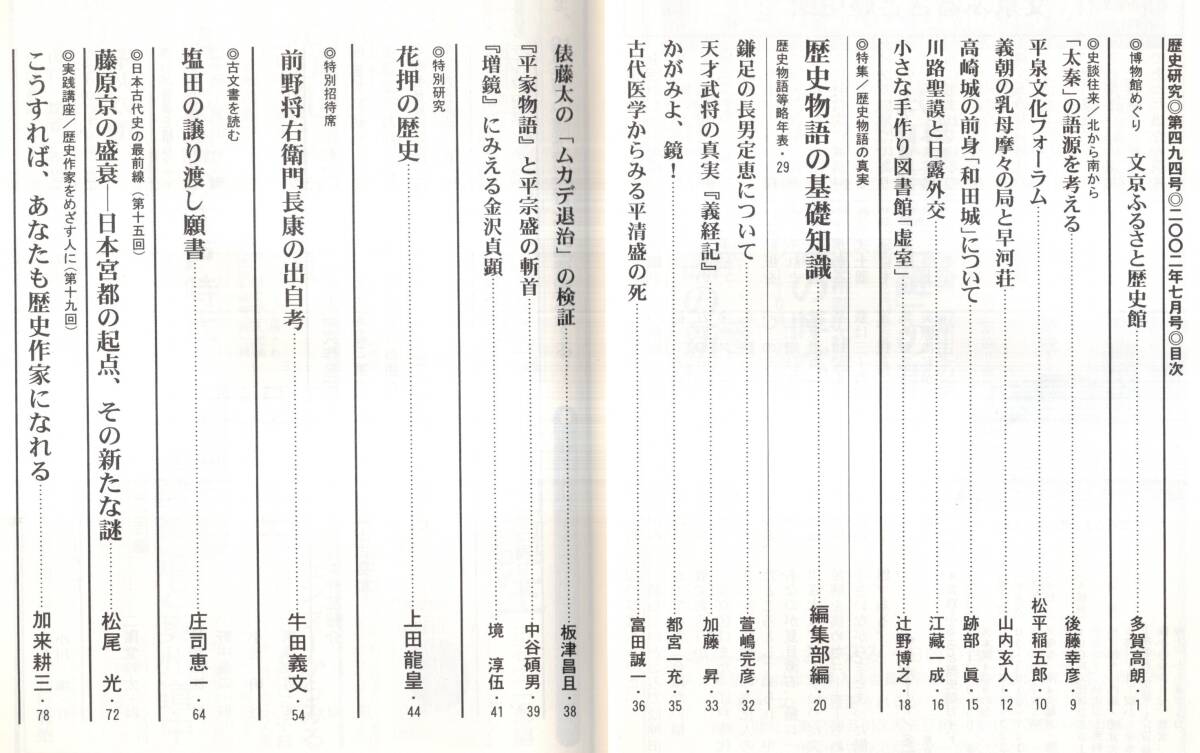 歴史研究◎第四九四号◎二〇〇二年七月号◎目次
◎博物館めぐり　文京ふるさと歴史館……多賀高朗・1
◎史談往来／北から南から
「太秦」の語源を考える……後藤幸彦・9
平泉文化フォーラム……松平稲五郎・10
義朝の乳母摩々の局と早河荘……山内玄人・12
高崎城の前身「和田城」について……跡部　眞・15
川路聖謨と日露外交……江蔵一成・16
小さな手作り図書館「虚室」……辻野博之・18
◎特集／歴史物語の真実
歴史物語の基礎知識……編集部編・20
歴史物語等略年表・29
鎌足の長男定恵について……萱嶋完彦・32
天才武将の真実『義経記』……加藤　昇・33
かがみよ、鏡！……都宮一充・35
古代医学からみる平清盛の死……富田誠一・36
俵藤太の「ムカデ退治」の検証……板津昌且・38
『平家物語』と平宗盛の斬首……中谷碩男・39
『増鏡』にみえる金沢貞顕……境　淳伍・41
◎特別研究
花押の歴史……上田龍皇・44
◎特別招待席
前野将右衛門長康の出自考……牛田義文・54
◎古文書を読む
塩田の譲り渡し願書……庄司恵一・64
◎日本古代史の最前線（第十五回）
藤原京の盛衰―日本宮都の起点、その新たな謎……松尾　光・72
◎実践講座／歴史作家をめざす人に（第十九回）
こうすれば、あなたも歴史作家になれる……加来耕三・78